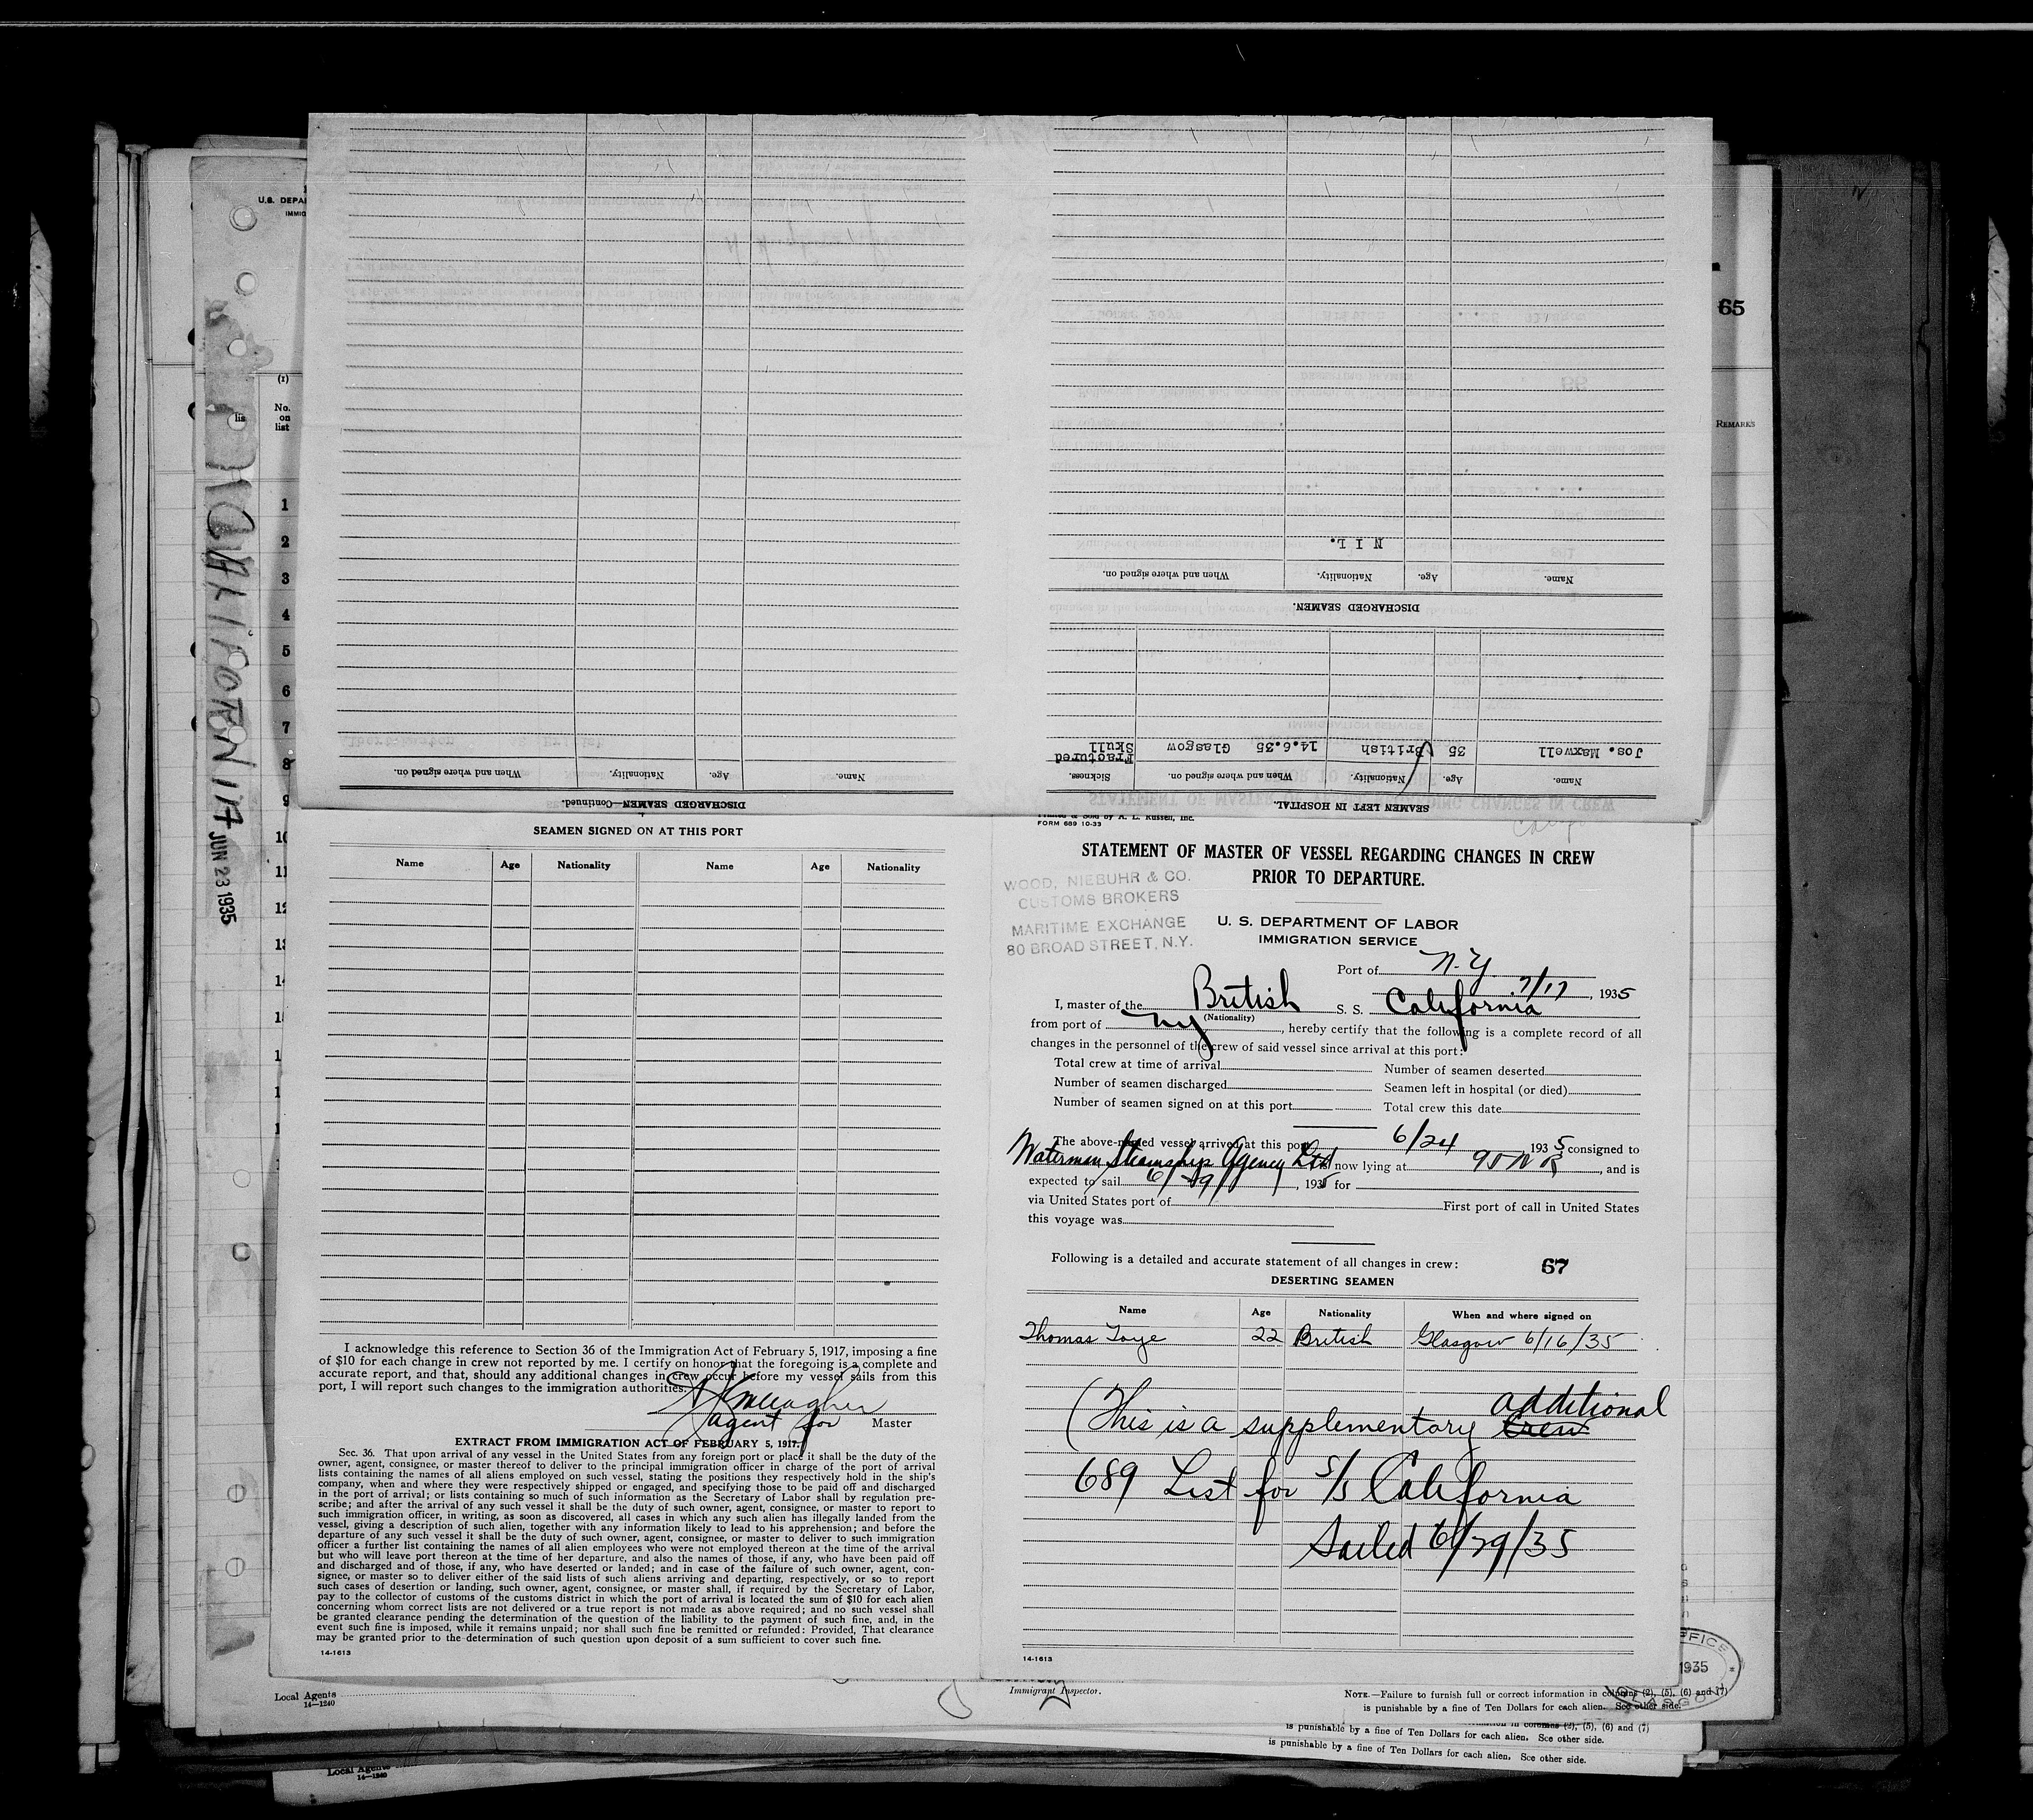 U.S. DEPA
IMMIG
(1)
No.
on
list
lis
1
2
3
4
5
6
7
8
9
10
11
JUN 23 1935
65
REMARKS
SEAMEN LEFT IN HOSPITAL.
Name. Age. Nationality. When and where signed on. Sickness.
Jos. Maxwell 35 British 14.6.35 Glasgow Fractured
Skull
DISCHARGED SEAMEN.
Name. Age. Nationality. When and where signed on.
N I L.
DISCHARGED SEAMEN—Continued.
Name. Age. Nationality. When and where signed on.
SEAMEN SIGNED ON AT THIS PORT
Name Age Nationality Name Age Nationality
I acknowledge this reference to Section 36 of the Immigration Act of February 5, 1917, imposing a fine
of $10 for each change in crew not reported by me. I certify on honor that the foregoing is a complete and
accurate report, and that, should any additional changes in crew occur before my vessel sails from this
port, I will report such changes to the immigration authorities.
agent for Master
EXTRACT FROM IMMIGRATION ACT OF FEBRUARY 5, 1917.
Sec. 36. That upon arrival of any vessel in the United States from any foreign port or place it shall be the duty of the
owner, agent, consignee, or master thereof to deliver to the principal immigration officer in charge of the port of arrival
lists containing the names of all aliens employed on such vessel, stating the positions they respectively hold in the ship's
company, when and where they were respectively shipped or engaged, and specifying those to be paid off and discharged
in the port of arrival; or lists containing so much of such information as the Secretary of Labor shall by regulation pre-
scribe; and after the arrival of any such vessel it shall be the duty of such owner, agent, consignee, or master to report to
such immigration officer, in writing, as soon as discovered, all cases in which any such alien has illegally landed from the
vessel, giving a description of such alien, together with any information likely to lead to his apprehension; and before the
departure of any such vessel it shall be the duty of such owner, agent, consignee, or master to deliver to such immigration
officer a further list containing the names of all alien employees who were not employed thereon at the time of the arrival
but who will leave port thereon at the time of her departure, and also the names of those, if any, who have been paid off
and discharged and of those, if any, who have deserted or landed; and in case of the failure of such owner, agent, con-
signee, or master so to deliver either of the said lists of such aliens arriving and departing, respectively, or so to report
such cases of desertion or landing, such owner, agent, consignee, or master shall, if required by the Secretary of Labor,
pay to the collector of customs of the customs district in which the port of arrival is located the sum of $10 for each alien
concerning whom correct lists are not delivered or a true report is not made as above required; and no such vessel shall
be granted clearance pending the determination of the question of the liability to the payment of such fine, and, in the
event such fine is imposed, while it remains unpaid; nor shall such fine be remitted or refunded: Provided, That clearance
may be granted prior to the determination of such question upon deposit of a sum sufficient to cover such fine.
14-1613
Printed & Sold by A. L. Russell, Inc.
FORM 689 10-33
STATEMENT OF MASTER OF VESSEL REGARDING CHANGES IN CREW
PRIOR TO DEPARTURE.
WOOD, NIEBUHR & CO.
CUSTOMS BROKERS
MARITIME EXCHANGE
80 BROAD STREET, N.Y.
U. S. DEPARTMENT OF LABOR
IMMIGRATION SERVICE
Port of N.Y.
7/17, 1935
I, master of the British S. S. California
(Nationality)
from port of ny, hereby certify that the following is a complete record of all
changes in the personnel of the crew of said vessel since arrival at this port:
Total crew at time of arrival Number of seamen deserted
Number of seamen discharged Seamen left in hospital (or died)
Number of seamen signed on at this port Total crew this date
The above-named vessel arrived at this port 6/24 1935 consigned to
Waterman Steamship Agency Ltd now lying at 95 N R, and is
expected to sail 6/29/, 1935 for
via United States port of First port of call in United States
this voyage was
Following is a detailed and accurate statement of all changes in crew: 67
DESERTING SEAMEN
Name Age Nationality When and where signed on
Thomas Toye 22 British Glasgow 6/16/35
additional
(This is a supplementary crew
689 List for S/S California
Sailed 6/29/35
14-1613
Local Agents
14-1240
Immigrant Inspector.
NOTE.—Failure to furnish full or correct information in columns (2), (5), (6) and (7)
is punishable by a fine of Ten Dollars for each alien. See other side.
(2), (5), (6) and (7)
is punishable by a fine of Ten Dollars for each alien. See other side.
is punishable by a fine of Ten Dollars for each alien. See other side.
Local Agents
14-1240
1935